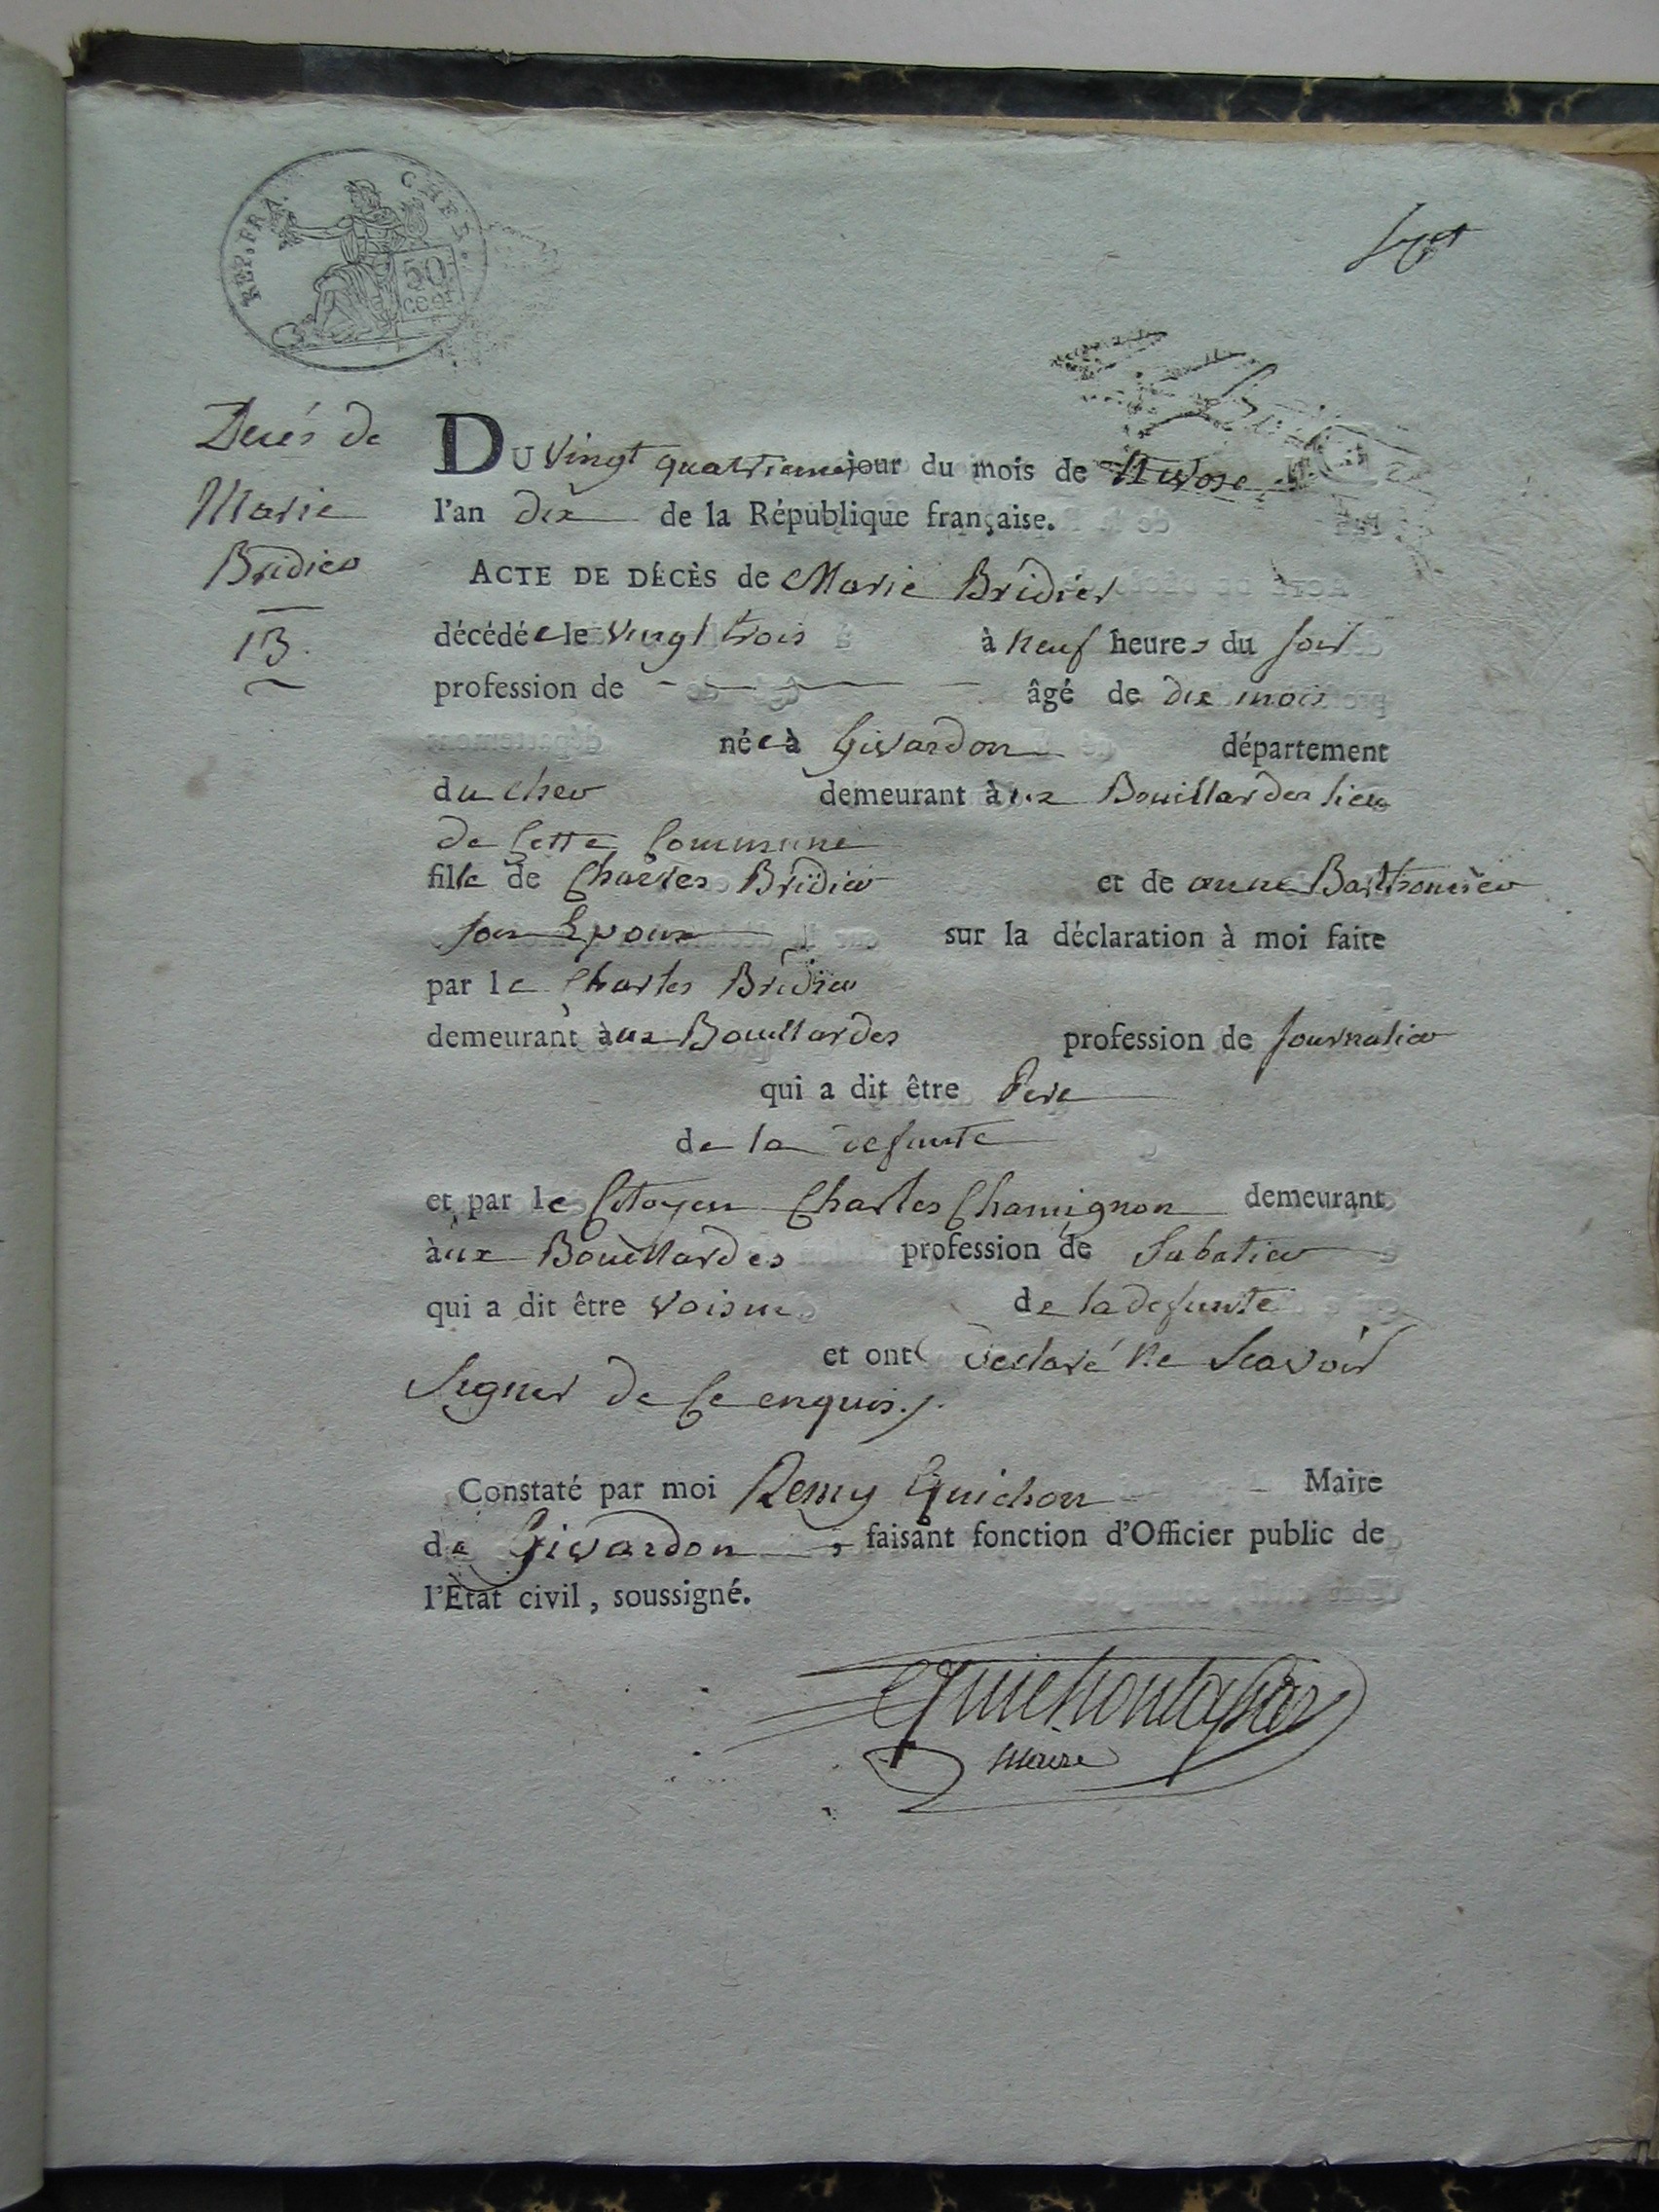 REP. FRA.
50
cent
sept
Decés de
Marie
Bridier
13.
DU Vingt quatrieme jour du mois de Nivose
l'an dix de la République française.
ACTE DE DÉCÈS de Marie Bridier
décédée le vingt trois à neuf heures du soir
profession de âgé de dix mois
née à Givardon département
du cher demeurant àux Bouillardes lieu
de cette commune
fille de Charles Bridier et de anne Barthomier
son Epouse sur la déclaration à moi faite
par le Charles Bridier
demeurant àux Bouillardes profession de Journalier
qui a dit être Pere
de la defunte
et par le Citoyen Charles Chamignon demeurant
àux Bouillardes profession de Sabotier
qui a dit être voisin de la defunte
et ont declaré ne scavoir
signer de ce enquis ./.
Constaté par moi Remy Guichon Maire
de Givardon, faisant fonction d'Officier public de
l'État civil, soussigné.
Maire